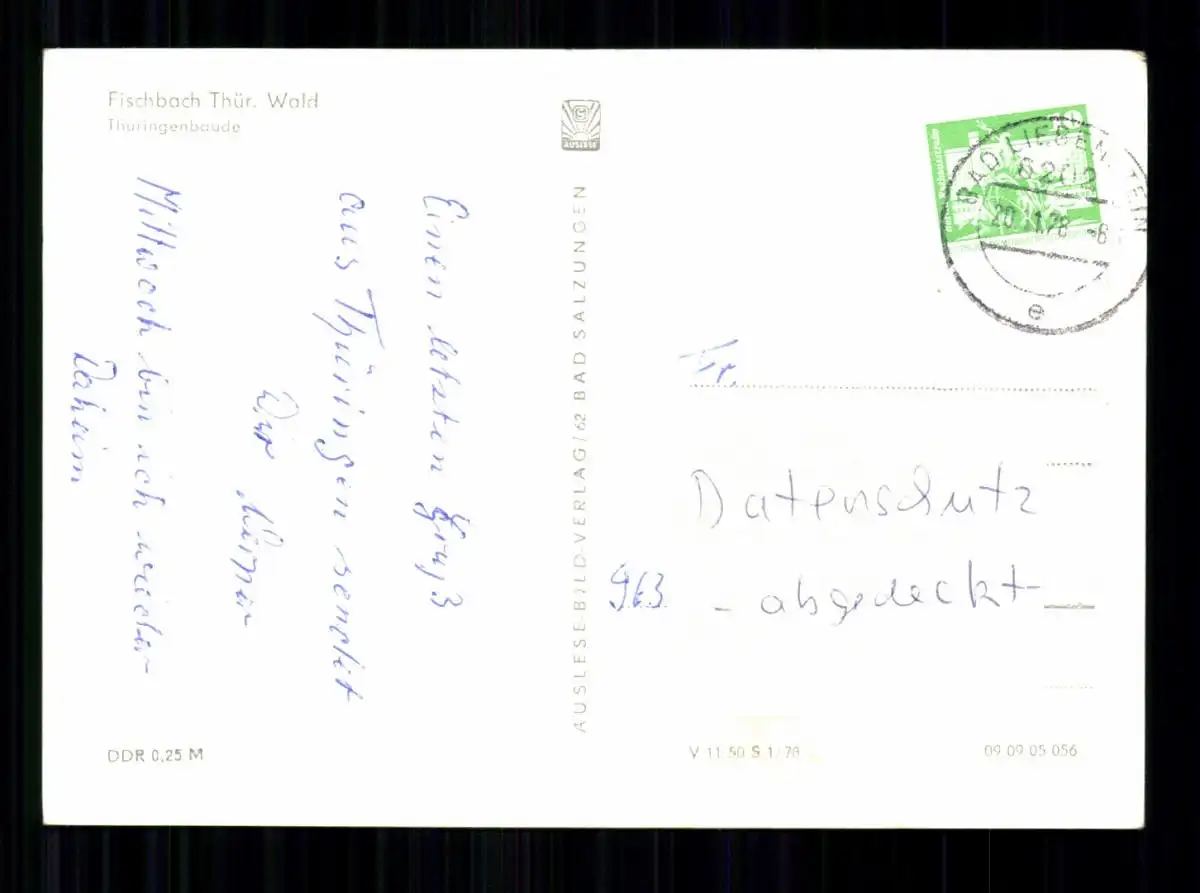 Fischbach Thür. Wald
Thüringenbaude
Einen letzten Gruß
aus Thüringen sendet
Dir
Mittwoch bin ich wieder
Daheim
DDR 0,25 M
AUSLESE
AUSLESE-BILD-VERLAG/62 BAD SALZUNGEN
10
BAD LIEBENSTEIN
6202
20. 78 -8
e
Fr.
Datenschutz
963
- abgedeckt
V 11 50 S 1/78
09 09 05 056